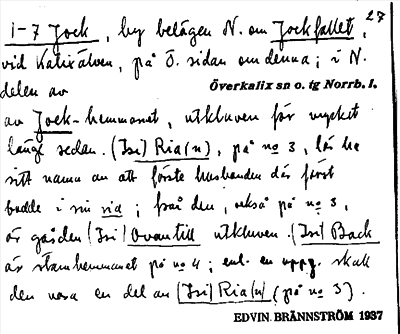 27
1-7 Jock, by belägen N. om Jockfallet,
vid Kalixälven, på Ö. sidan om denna; i N.
delen av Överkalix sn o. tg Norrb. l.
av Jock-hemmanet, utkluven för mycket
långt sedan. (Isi) Ria(n), på no 3, lär ha
sitt namn av att förste husbonden där först
bodde i sin ria; från den, också på no 3,
är gården (Isi) Ovantill utkluven. (Isi) Back
är stamhemmanet på no 4; enl. en uppg. skall
den vara en del av (Isi) Ria(n) (på no 3).
EDVIN BRÄNNSTRÖM 1937